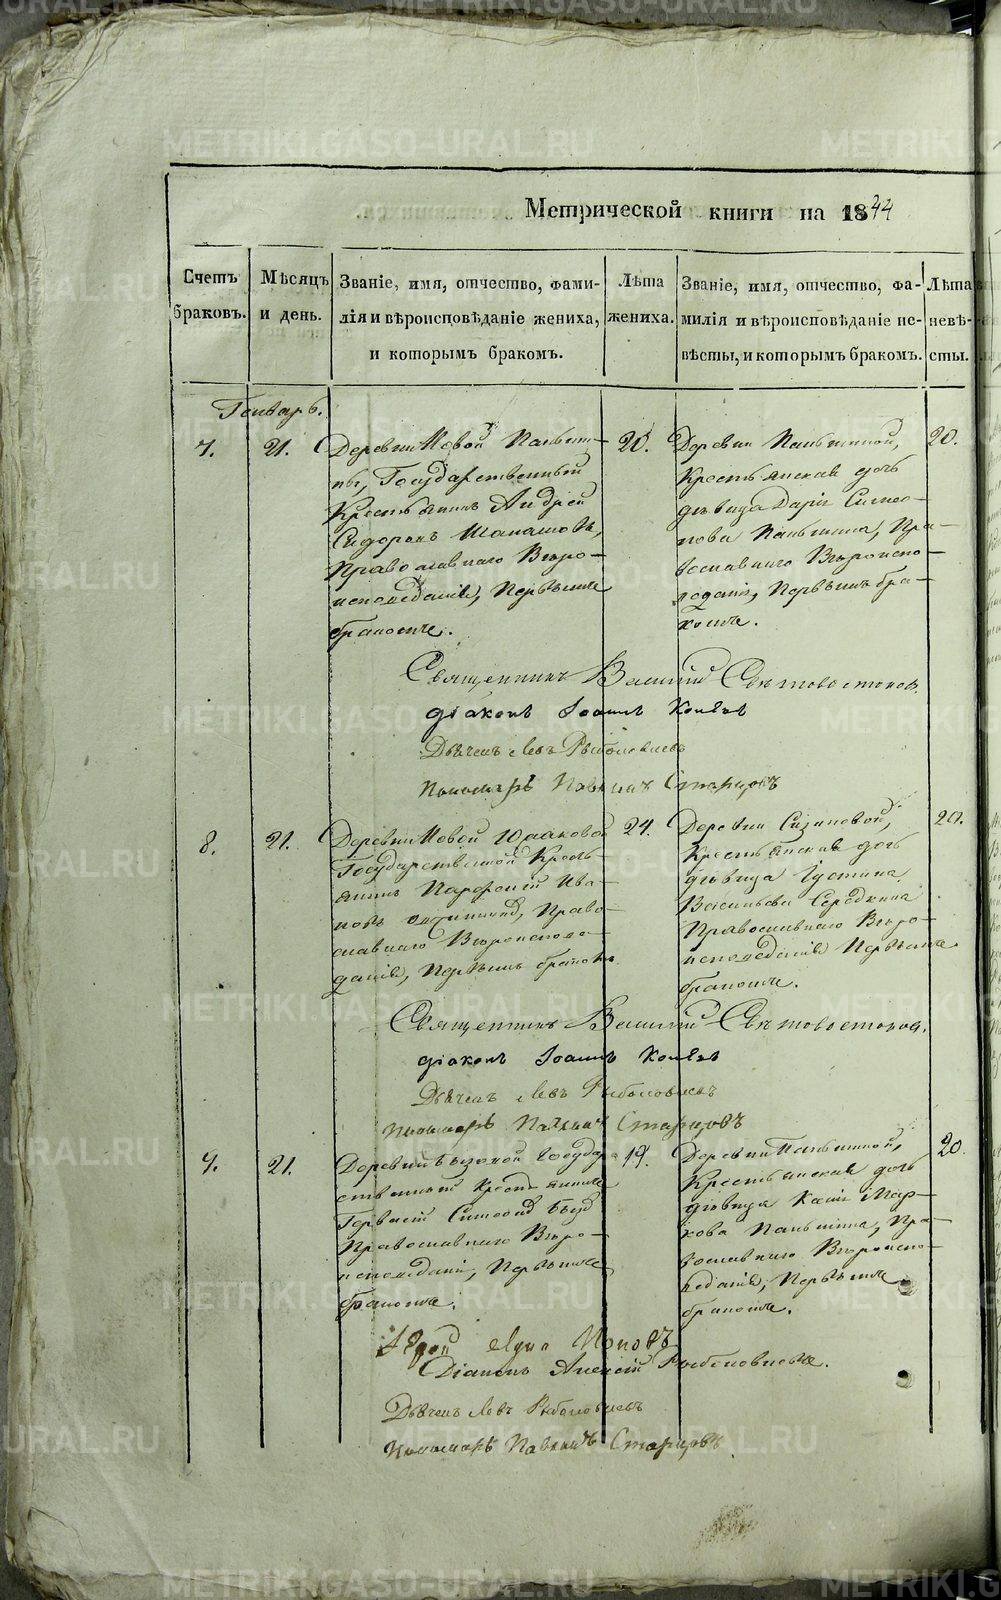 Метрической книги на 1844
Счетъ браковъ.
Мѣсяцъ и день.
Званіе, имя, отчество, фами-
лія и вѣроисповѣданіе жениха,
и которымъ бракомъ.
Лѣта
жениха.
Званіе, имя, отчество, фа-
милія и вѣроисповѣданіе не-
вѣсты, и которымъ бракомъ.
Лѣта
невѣ-
сты.
Генварь.
7.
21.
Деревни Новой Паньши-
ны, Государственный
Крестьянинъ Андрей
Сидоровъ
Православнаго Вѣро-
исповеданія, Первымъ
бракомъ.
20.
Деревни Паньшиной,
Крестьянская дочь
дѣвица Дарія Симео-
нова Паньшина, Пра-
вославнаго Вѣроиспо-
веданія, Первымъ бра-
комъ.
20.
Священникъ Василій Свѣтовостоков
діаконъ Іоаннъ Коневъ
Дьячекъ Левъ Рыболовлевъ
Пономарь Павелъ Старцовъ
8.
21.
Деревни Новой
Государственной Кресть-
янинъ Парфеній Ива-
новъ Право-
славнаго Вѣроиспове-
данія, Первымъ бракомъ.
24.
Деревни Сизиковой,
Крестьянская дочь
дѣвица Іустина
Васильева Середкина
Православнаго Вѣро-
исповеданія Первымъ
бракомъ.
20.
Священникъ Василій Свѣтовостоков.
діаконъ Іоаннъ Коневъ
Дьячекъ Левъ Рыболовлевъ
Пономарь Павелъ Старцовъ
21.
Деревни Государ-
ственный Крестьянинъ
Православнаго Вѣро-
исповеданія, Первымъ
бракомъ.
19.
Деревни Паньшиной,
Крестьянская дочь
дѣвица Мар-
кова Паньшина, Пра-
вославнаго Вѣроиспо-
веданія, Первымъ
бракомъ.
20.
Іерей Поповъ
Діаконъ Алексій Рыболовлевъ.
Дьячекъ Левъ Рыболовлевъ
Пономарь Павелъ Старцовъ.
METRIKI.GASO-URAL.RU